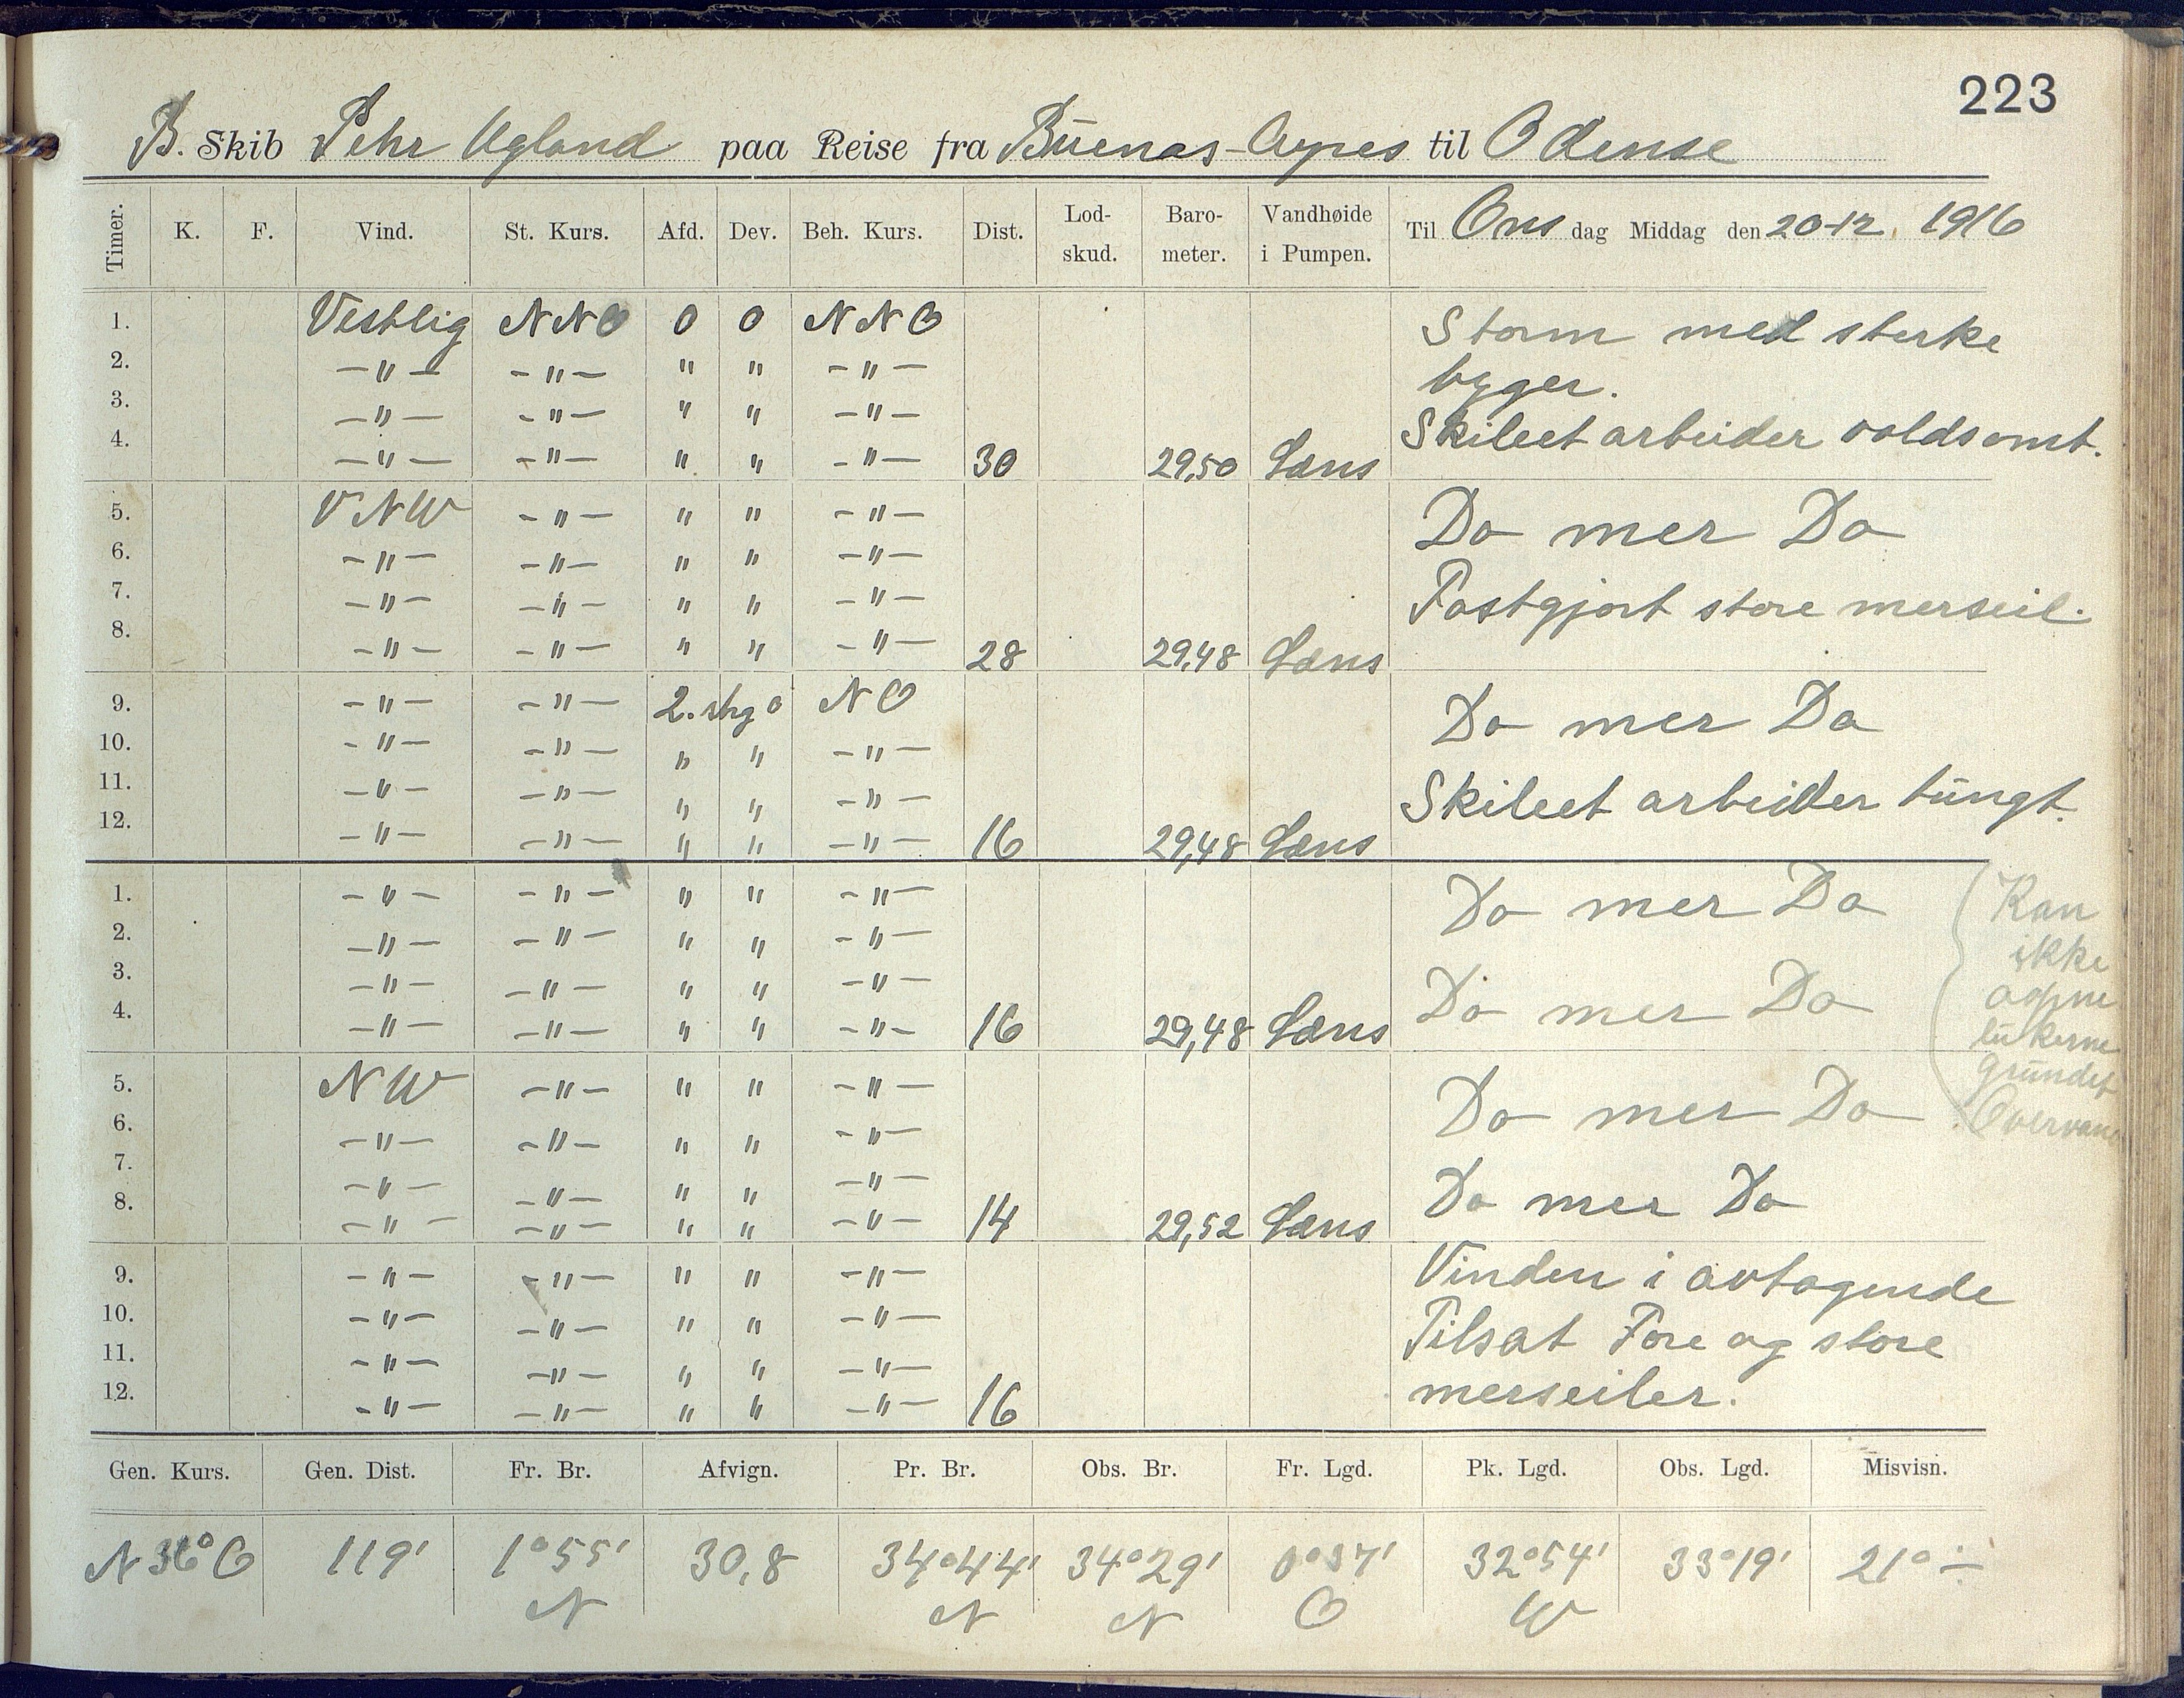 223
B. Skib Pehr Ugland paa Reise fra Buenas-Ayres til Odense
Timer. K. F. Vind. St. Kurs. Afd. Dev. Beh. Kurs. Dist. Lod-skud. Baro-meter. Vandhøide i Pumpen. Til Ons dag Middag den 20-12. 1916
1. Vestlig NNO 0 0 NNO Storm med sterke
2. -"- -"- " " -"- byger.
3. -"- -"- " " -"- Skibet arbeider voldsomt.
4. -"- -"- " " -"- 30 29,50 Læns
5. VNW -"- " " -"- Do mer Do
6. -"- -"- " " -"-
7. -"- -"- " " -"- Fastgjort store merseil.
8. -"- -"- " " -"- 28 29,48 Læns
9. -"- -"- 2. strg 0 NO Do mer Do
10. -"- -"- " " -"-
11. -"- -"- " " -"- Skibet arbeider tungt.
12. -"- -"- " " -"- 16 29,48 Læns
1. -"- -"- " " -"- Do mer Do
2. -"- -"- " " -"-
3. -"- -"- " " -"- Do mer Do
4. -"- -"- " " -"- 16 29,48 Læns
Kan
ikke
aapne
lukerne
grundet
Overvand
5. NW -"- " " -"- Do mer Do
6. -"- -"- " " -"-
7. -"- -"- " " -"- Do mer Do
8. -"- -"- " " -"- 14 29,52 Læns
9. -"- -"- " " -"- Vinden i avtagende
10. -"- -"- " " -"- Tilsat Fore og store
11. -"- -"- " " -"- merseiler.
12. -"- -"- " " -"- 16
Gen. Kurs. Gen. Dist. Fr. Br. Afvign. Pr. Br. Obs. Br. Fr. Lgd. Pk. Lgd. Obs. Lgd. Misvisn.
N 36° O 119' 1°55' 30,8 34°44' 34°29' 0°37' 32°54' 33°19' 21° ÷
N N N O W